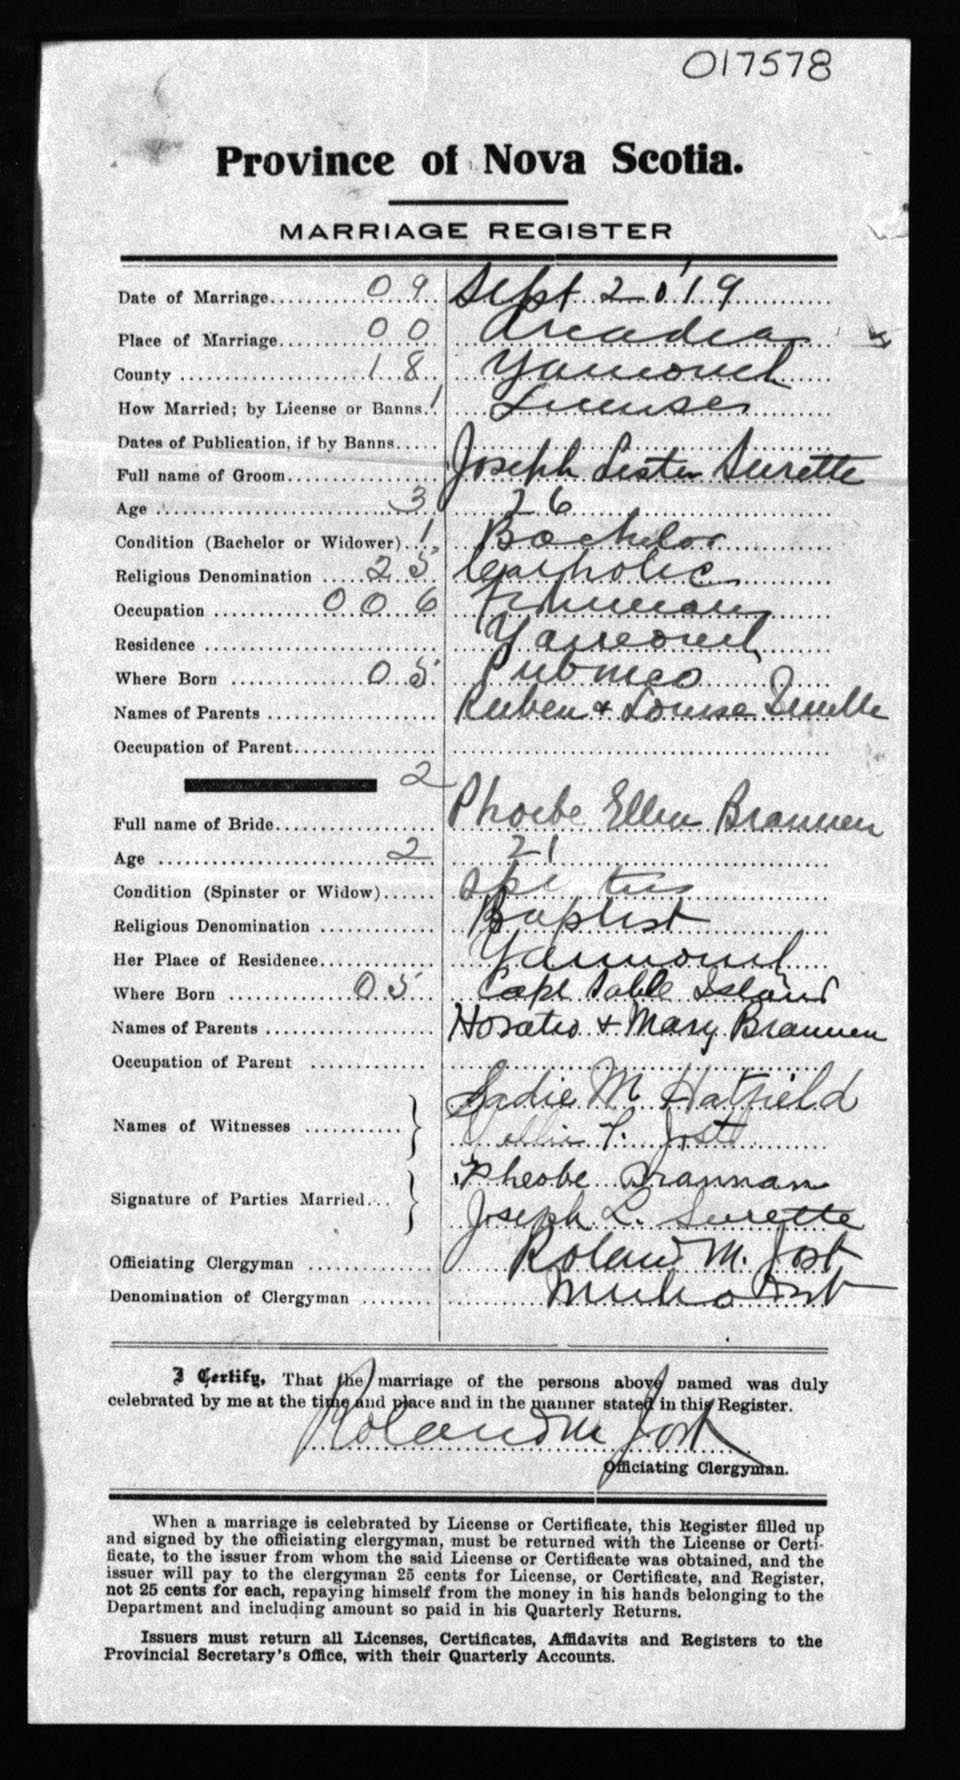 017578
Province of Nova Scotia.
MARRIAGE REGISTER
Date of Marriage 09 Sept 20 '19
Place of Marriage 00 Arcadia
County 18 Yarmouth
How Married; by License or Banns. 1 License
Dates of Publication, if by Banns
Full name of Groom Joseph Lester Surette
Age 3 26
Condition (Bachelor or Widower) 1 Bachelor
Religious Denomination 25 Catholic
Occupation 006 Fisherman
Residence Yarmouth
Where Born 05 Pubnico
Names of Parents Ruben & Louise Surette
Occupation of Parent
2
Full name of Bride Phoebe Ellen Brannen
Age 2 21
Condition (Spinster or Widow) Spinster
Religious Denomination Baptist
Her Place of Residence Yarmouth
Where Born 05 Cape Sable Island
Names of Parents Horatio & Mary Brannen
Occupation of Parent
Names of Witnesses Sadie M Hatfield
Jost
Signature of Parties Married Pheobe Brannan
Joseph L. Surette
Officiating Clergyman Roland M. Jost
Denomination of Clergyman Methodist
I Certify, That the marriage of the persons above named was duly
celebrated by me at the time and place and in the manner stated in this Register.
Roland M Jost
Officiating Clergyman.
When a marriage is celebrated by License or Certificate, this Register filled up
and signed by the officiating clergyman, must be returned with the License or Certi-
ficate, to the issuer from whom the said License or Certificate was obtained, and the
issuer will pay to the clergyman 25 cents for License, or Certificate, and Register,
not 25 cents for each, repaying himself from the money in his hands belonging to the
Department and including amount so paid in his Quarterly Returns.
Issuers must return all Licenses, Certificates, Affidavits and Registers to the
Provincial Secretary's Office, with their Quarterly Accounts.